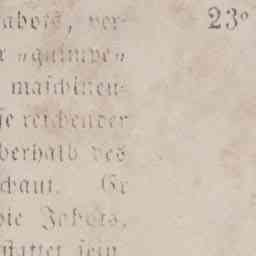 abots, ver-
23°
r „guimpe"
maschinen-
se reichender
berhalb des
chaut. Ge
die Jabots,
stattet sein